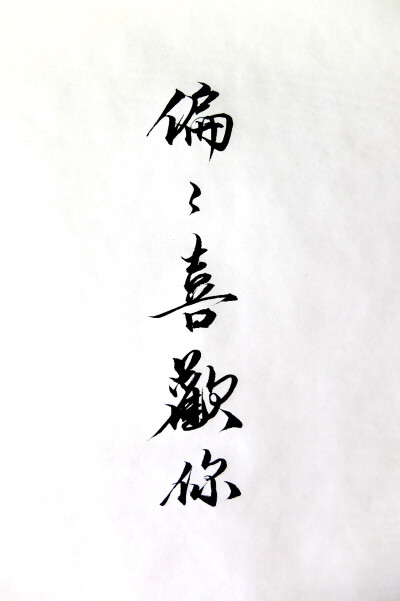 偏〻喜歡你